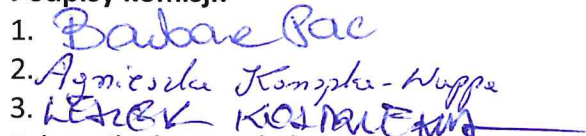 Podpisy komisji:
1. Barbara Pac
2. Agnieszka Konopka-Wuppe
3. LESZEK